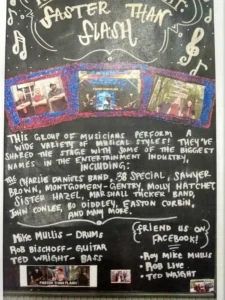 FASTER THAN
FLASH
THIS GROUP OF MUSICIANS PERFORM A
WIDE VARIETY OF MUSICAL STYLES! THEY'VE
SHARED THE STAGE WITH SOME OF THE BIGGEST
NAMES IN THE ENTERTAINMENT INDUSTRY,
INCLUDING:
THE CHARLIE DANIELS BAND, 38 SPECIAL, SAWYER
BROWN, MONTGOMERY-GENTRY, MOLLY HATCHET
SISTER HAZEL, MARSHALL TUCKER BAND,
JOHN CONLEE, BO DIDDLEY, EASTON CORBIN,
AND MANY MORE.
MIKE MULLIS - DRUMS
ROB BISCHOFF - GUITAR
TED WRIGHT - BASS
FRIEND US ON
FACEBOOK!
• Roy Mike Mullis
• ROB LIVE
• TED WRIGHT
FASTER THAN FLASH